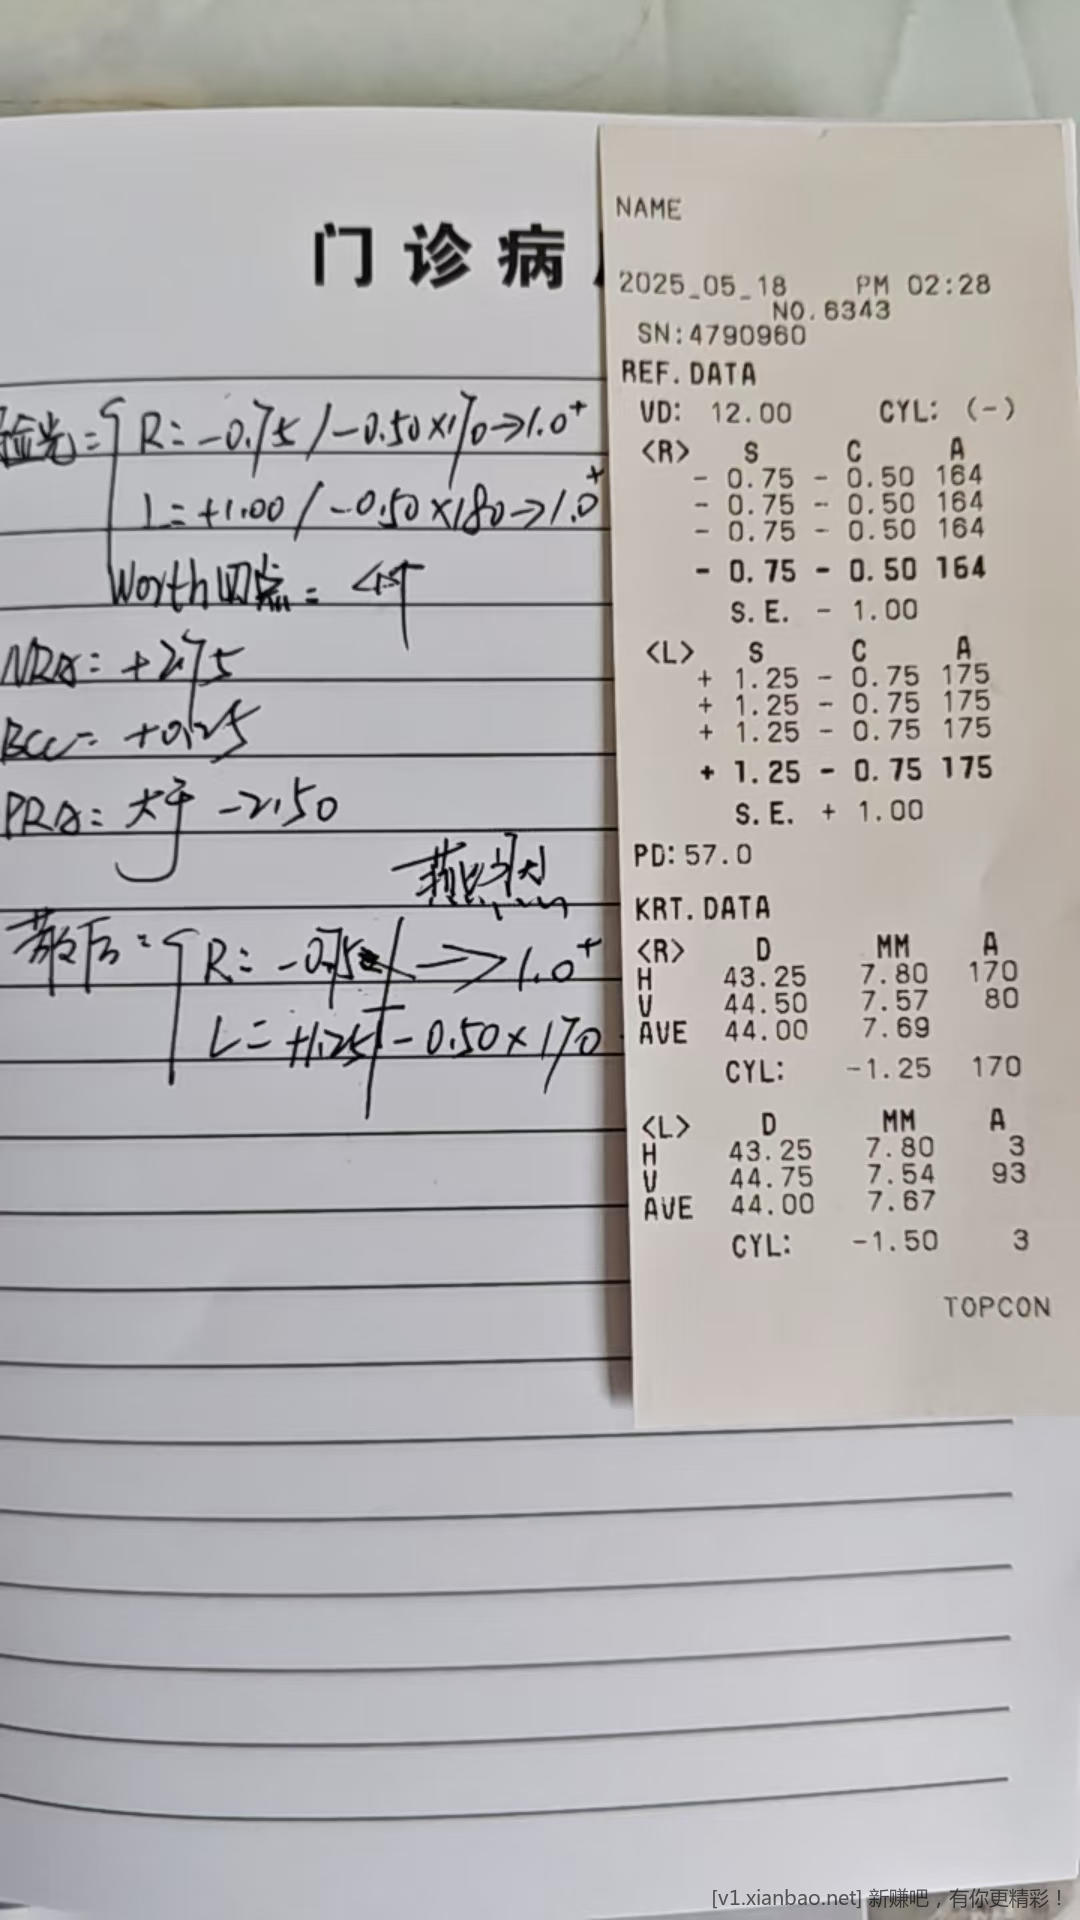 门诊病
验光= R: -0.75 / -0.50×170→1.0⁺
L= +1.00 / -0.50×180→1.0⁺
Worth四点=
NRA: +2.75
BCC= +0.25
PRA: 大于 -2.50
散后: R: -0.75 → 1.0⁺
L= +1.25 / -0.50×170
NAME
2025_05_18 PM 02:28
NO.6343
SN:4790960
REF.DATA
VD: 12.00 CYL: (-)
<R> S C A
- 0.75 - 0.50 164
- 0.75 - 0.50 164
- 0.75 - 0.50 164
- 0.75 - 0.50 164
S.E. - 1.00
<L> S C A
+ 1.25 - 0.75 175
+ 1.25 - 0.75 175
+ 1.25 - 0.75 175
+ 1.25 - 0.75 175
S.E. + 1.00
PD:57.0
KRT.DATA
<R> D MM A
H 43.25 7.80 170
V 44.50 7.57 80
AVE 44.00 7.69
CYL: -1.25 170
<L> D MM A
H 43.25 7.80 3
V 44.75 7.54 93
AVE 44.00 7.67
CYL: -1.50 3
TOPCON
[v1.xianbao.net] 新赚吧，有你更精彩！